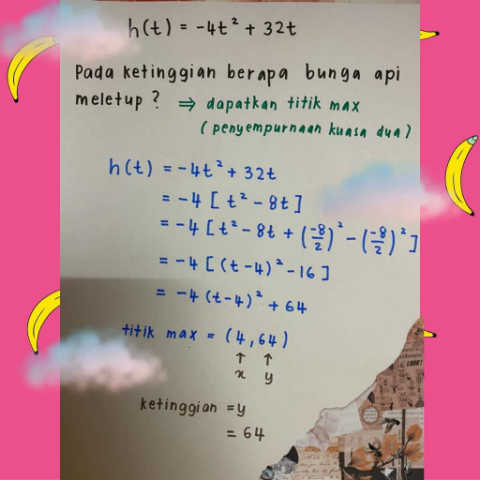 h(t) = -4t² + 32t
Pada ketinggian berapa bunga api
meletup? ⇒ dapatkan titik max
(penyempurnaan kuasa dua)
h(t) = -4t² + 32t
= -4 [t² - 8t]
= -4 [t² - 8t + (-8/2)² - (-8/2)²]
= -4 [(t-4)² - 16]
= -4 (t-4)² + 64
titik max = (4, 64)
↑ ↑
x y
ketinggian = y
= 64